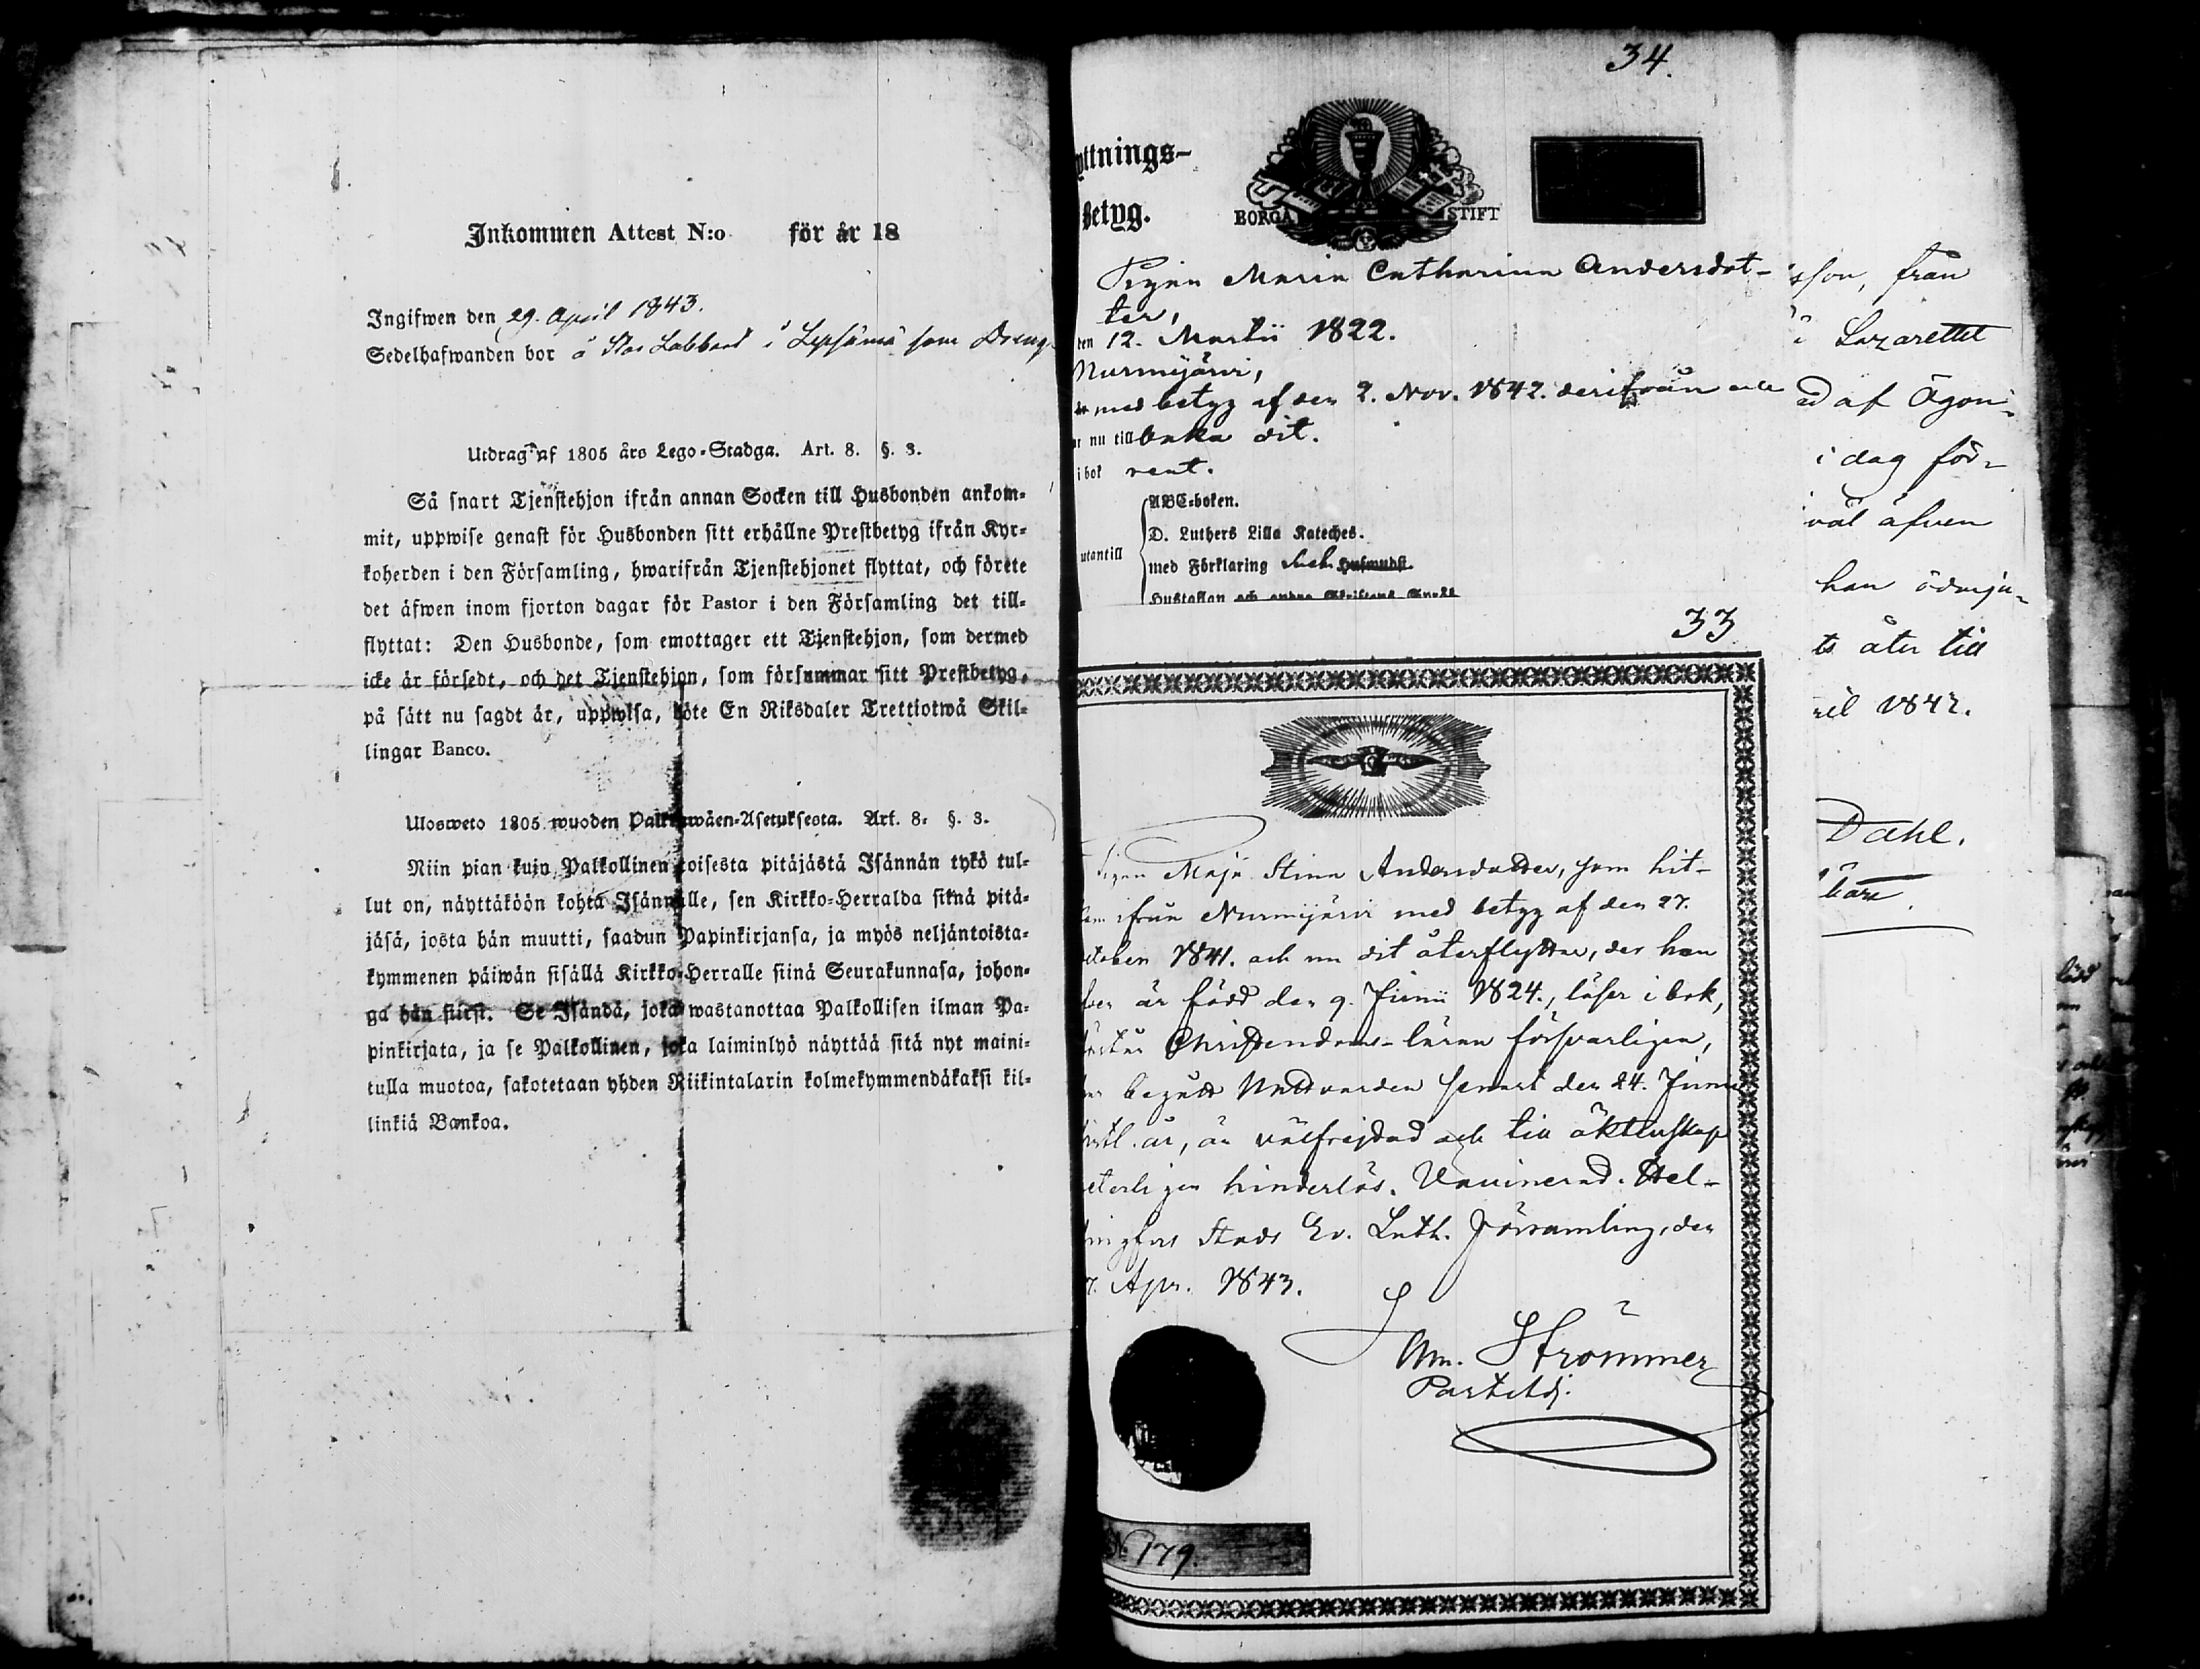 Inkommen Attest N:o för år 18
Ingifwen den 29. April 1843.
Sedelhafwanden bor å Stor Labbas i Lepsämä som Dreng
Utdrag af 1805 års Lego-Stadga. Art. 8. §. 3.
Så snart Tjenstehjon ifrån annan Socken till Husbonden ankom-
mit, uppwise genast för Husbonden sitt erhållne Prestbetyg ifrån Kyr-
koherden i den Församling, hwarifrån Tjenstehjonet flyttat, och förete
det äfwen inom fjorton dagar för Pastor i den Församling det till-
flyttat: Den Husbonde, som emottager ett Tjenstehjon, som dermed
icke är försedt, och det Tjenstehjon, som försummar sitt Prestbetyg,
på sätt nu sagdt är, uppwisa, böte En Riksdaler Trettiotwå Skil-
lingar Banco.
Ulosweto 1805 wuoden Palkkawäen-Asetuksesta. Art. 8. §. 3.
Niin pian kuin Palkollinen toisesta pitäjästä Isännän tykö tul-
lut on, näyttäköön kohta Isännälle, sen Kirkko-Herralda siknä pitä-
jäsä, josta hän muutti, saadun Papinkirjansa, ja myös neljäntoista-
kymmenen päiwän sisällä Kirkko-Herralle siinä Seurakunnasa, johon-
ga hän siirst. Se Isändä, joka wastanottaa Palkollisen ilman Pa-
pinkirjata, ja se Palkollinen, joka laiminlyö näyttää sitä nyt maini-
tulla muotoa, sakotetaan yhden Riikintalarin kolmekymmendäkaksi kil-
linkiä Bankoa.
34.
yttnings-
Betyg.
BORGÅ STIFT
Pigan Maria Catharina Andersdot-
ter,
den 12. Martii 1822.
Nurmijärvi,
med betyg af den 2. Nov. 1842. derifrån och
nu till baka dit.
i bok rent.
utantill
ABC-boken.
D. Luthers Lilla Kateches.
med Förklaring Husmudst.
Hustaflan och andra Christend. Stycke
33
Pigan Maja Stina Andersdotter, som hit-
kom ifrån Nurmijärvi med betyg af den 27.
October 1841. och nu dit återflyttar, der hon
är född den 9. Junii 1824., läser i bok,
förstår Christendoms-läran försvarligen,
har begått Nattvarden senast den 24. Junii
sistl. år, är välfrejdad och till äktenskap
veterligen hinderlös. Vaccinerad. Hel-
singfors Stads Ev. Luth. Församling, den
7. Apr. 1843.
Am. Strömmer
Past. adj.
N: 179.
sson, från
i Lazarettet
ad af Ägon-
i dag för-
väl äfven
han ödmju-
ts åter till
ril 1842.
Dahl.